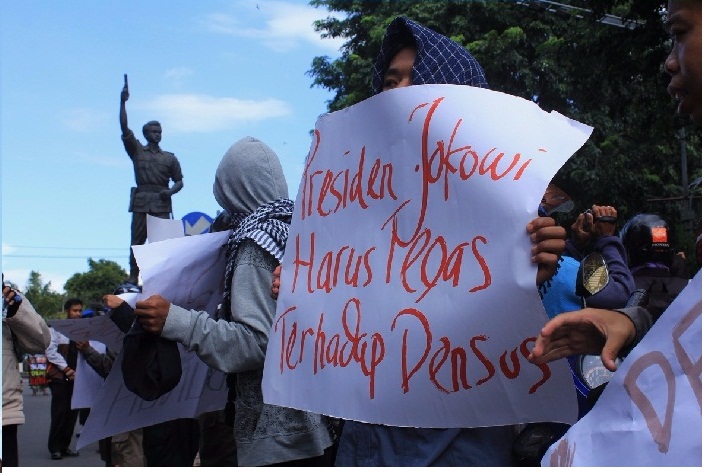 Presiden Jokowi
Harus Tegas
Terhadap Densus